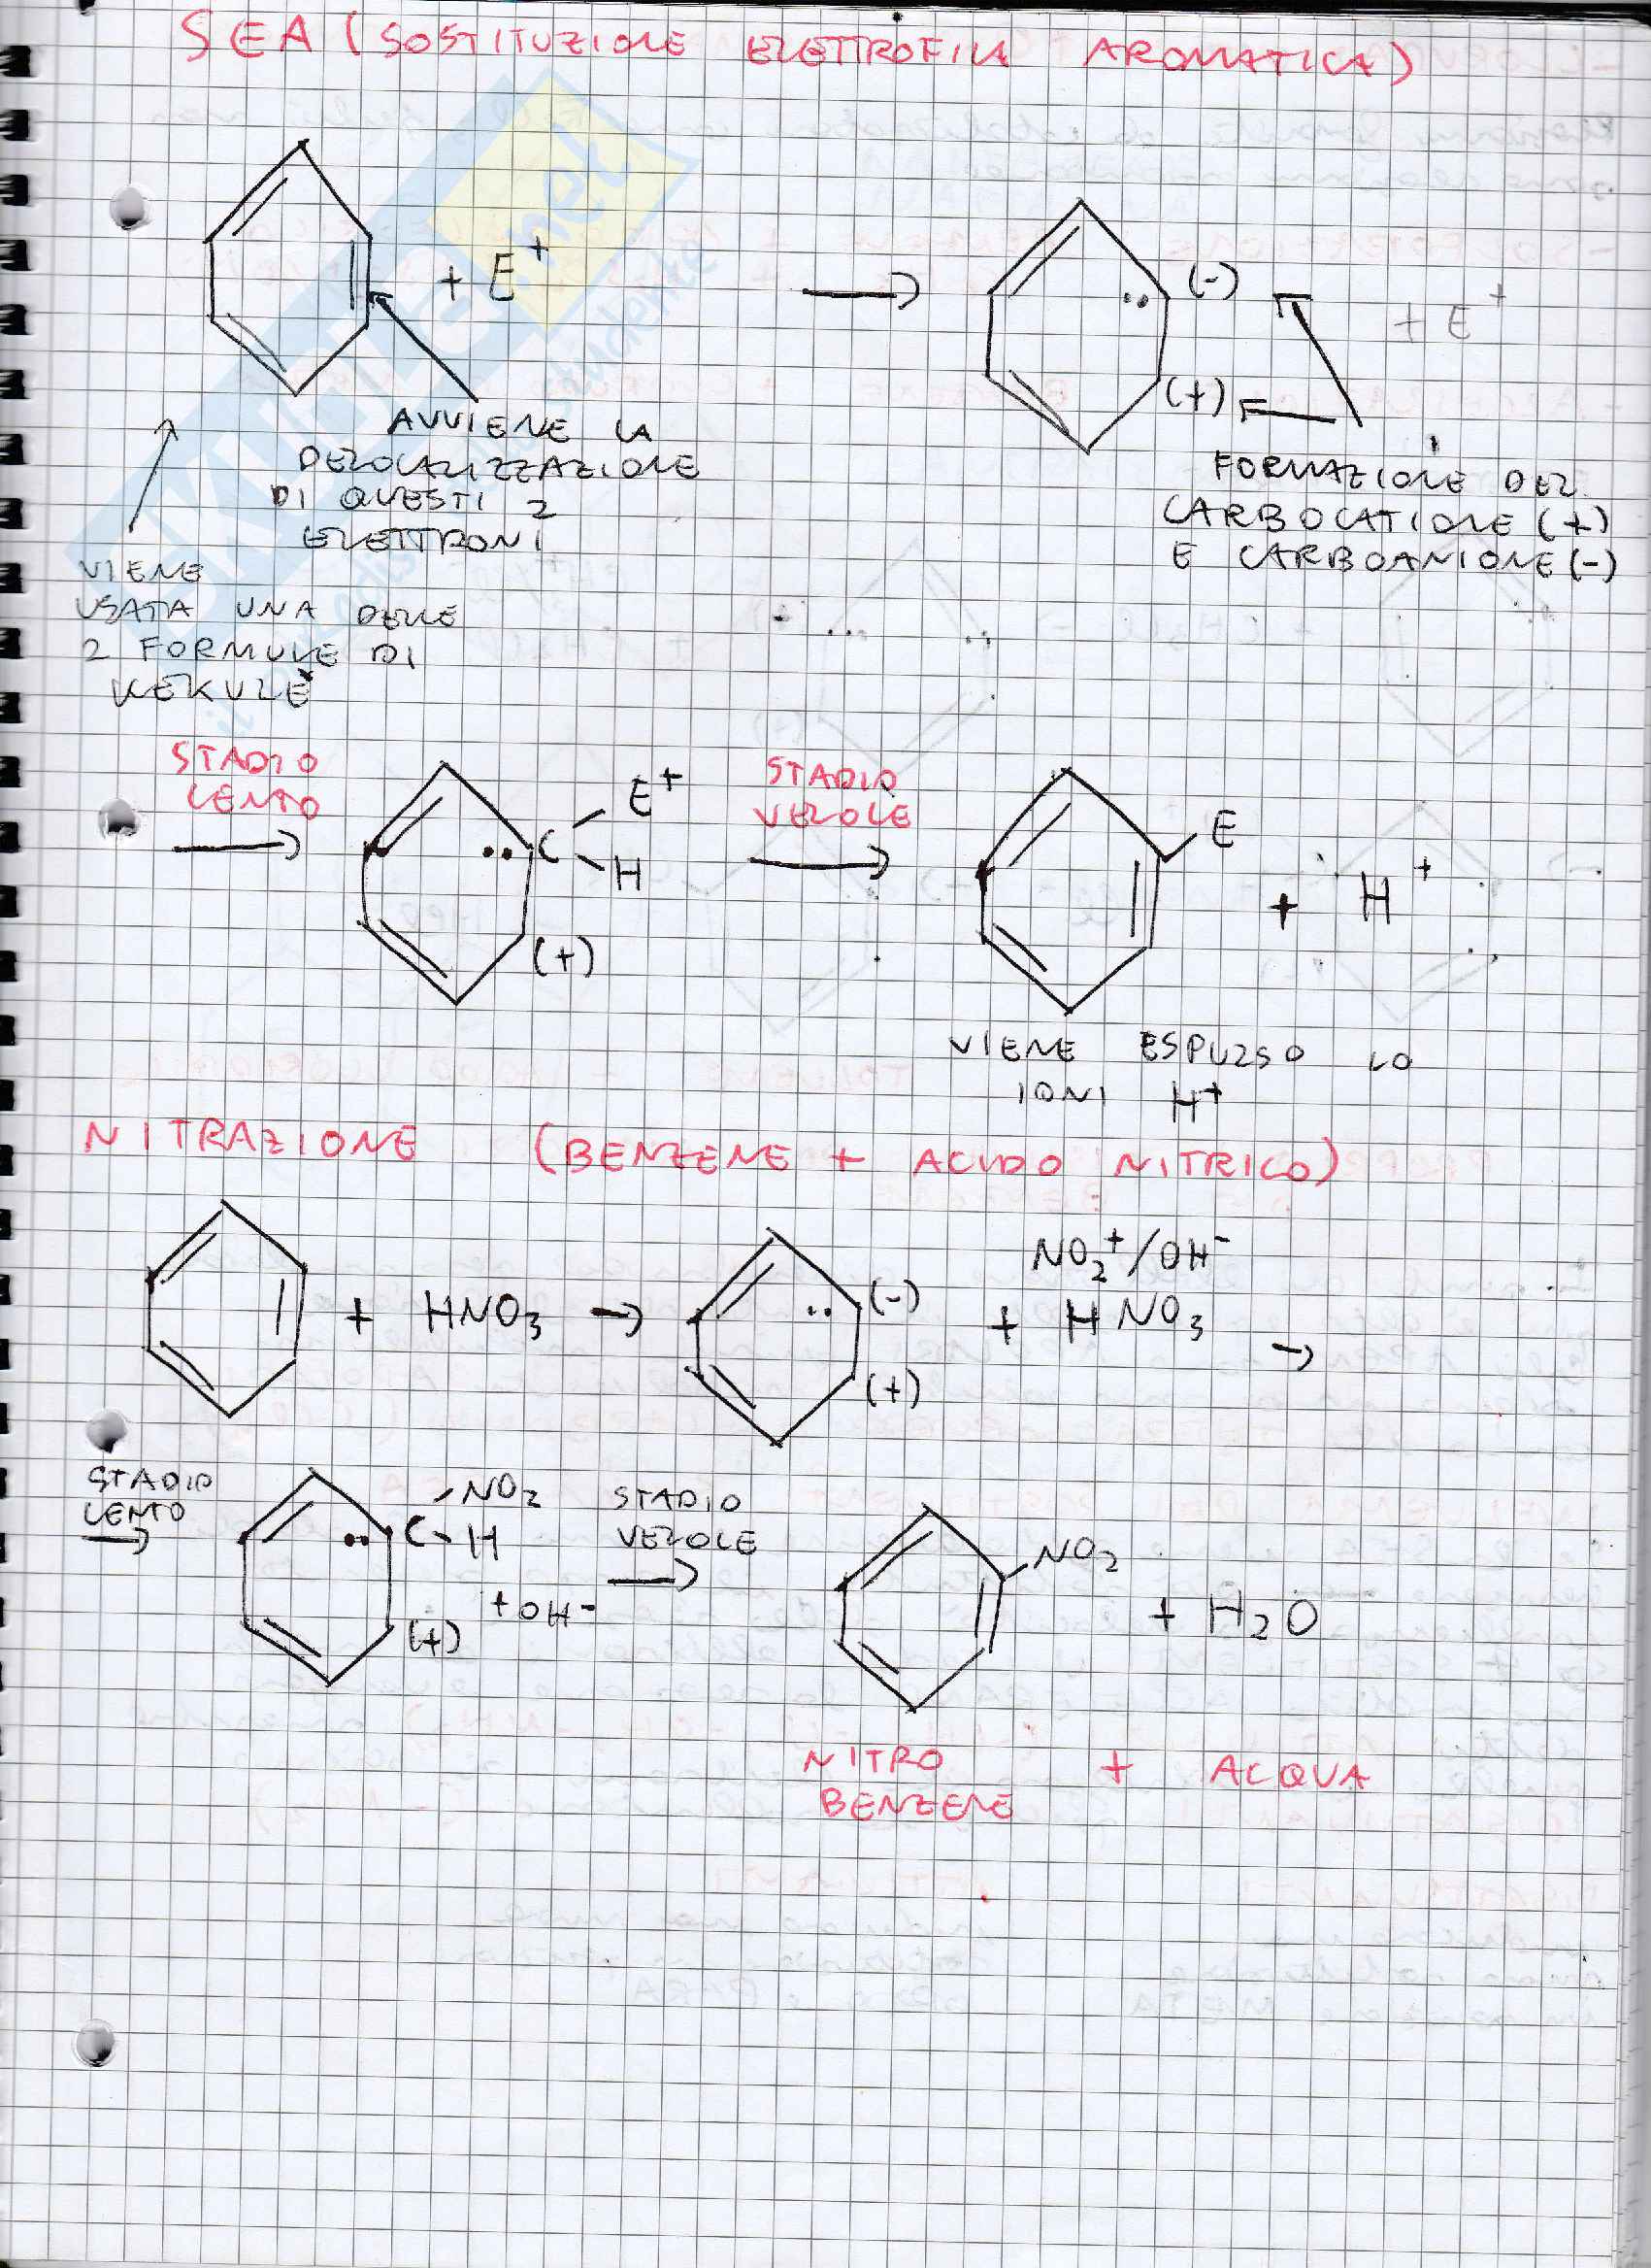 SEA (SOSTITUZIONE ELETTROFILA AROMATICA)
+ E+
(-)
+ E+
(+)
AVVIENE LA
DELOCALIZZAZIONE
DI QUESTI 2
ELETTRONI
FORMAZIONE DEL
CARBOCATIONE (+)
E CARBOANIONE (-)
VIENE
USATA UNA DELLE
2 FORMULE DI
KEKULE'
STADIO
LENTO
C
E+
H
(+)
STADIO
VELOCE
E
+ H+
VIENE ESPULSO LO
IONI H+
NITRAZIONE (BENZENE + ACIDO NITRICO)
+ HNO3
(-)
(+)
NO2+/OH-
+ HNO3
STADIO
LENTO
C
NO2
H
+OH-
(+)
STADIO
VELOCE
NO2
+ H2O
NITRO
BENZENE
+ ACQUA